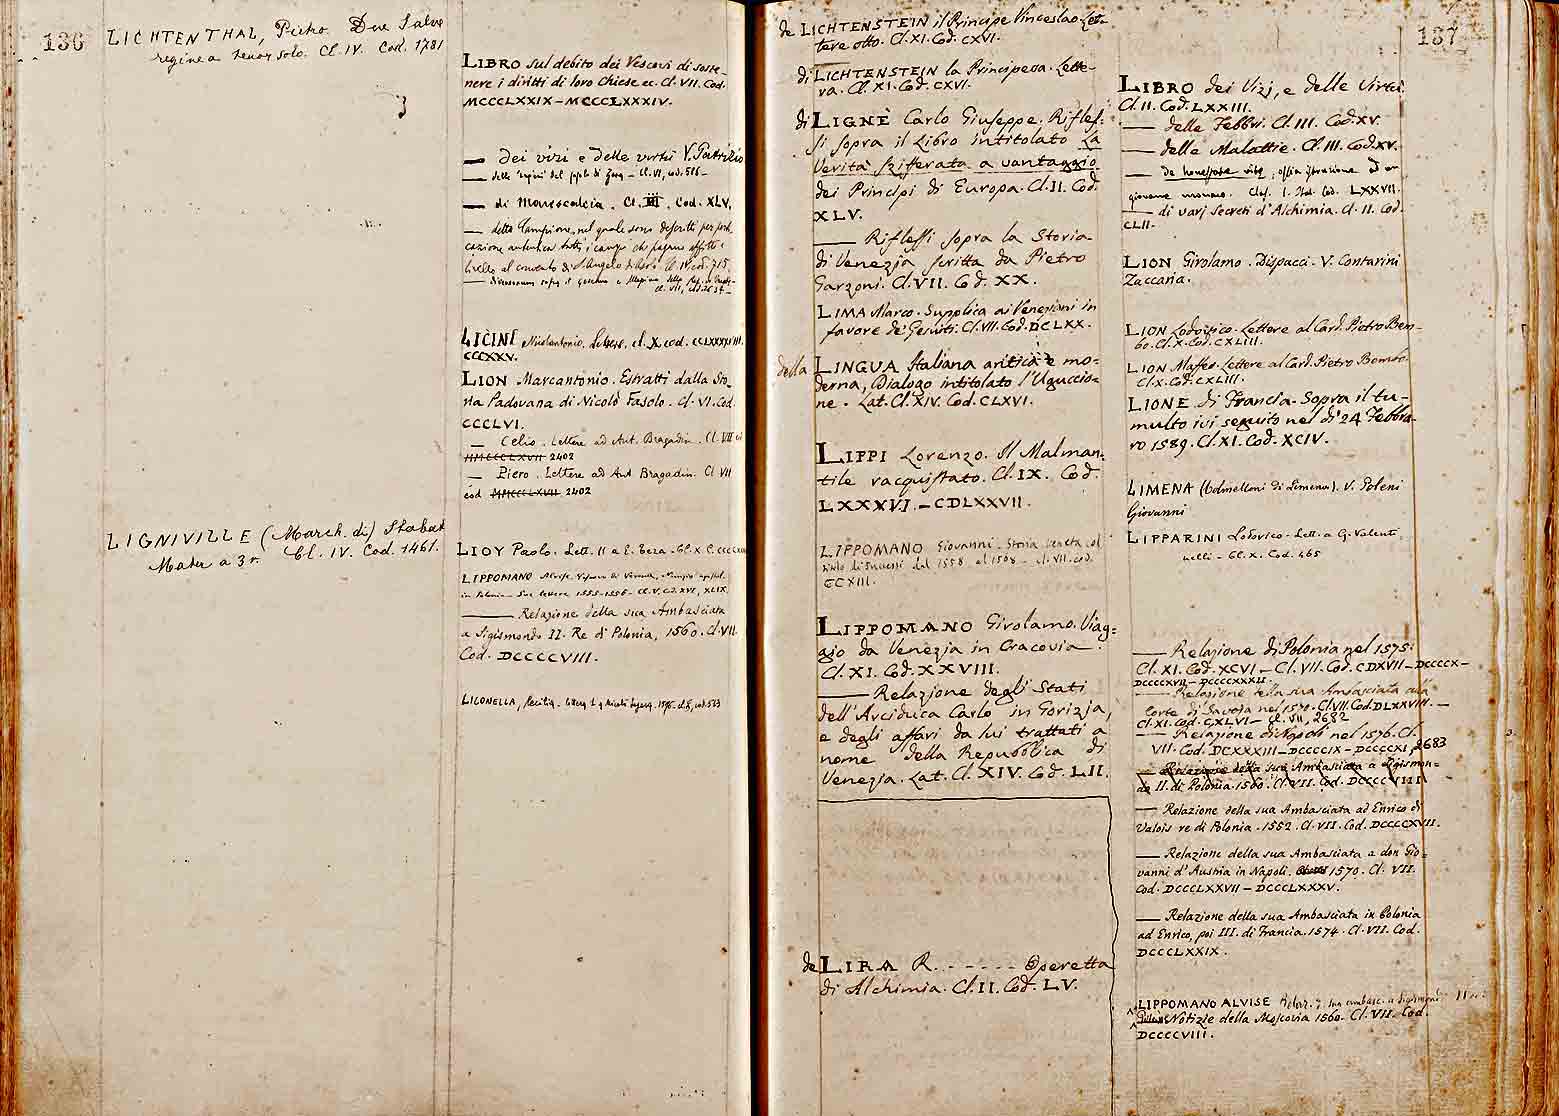 136
LICHTENTHAL, Pietro Due Salve
regine a tenor solo. Cl. IV. Cod. 1781
LIGNIVILLE (March. di) Stabat
Mater a 3 v. Cl. IV. Cod. 1461.
LIBRO sul debito dei Vescovi di soste-
nere i diritti di loro chiese ec. Cl. VII. Cod.
MCCCLXXIX – MCCCLXXXIV.
— dei vizi e delle virtù V. Patrizio
— di Marescalcia. Cl. III. Cod. XLV.
— detto Campione, nel quale sono descritti per
cazione autentica tutti i campi che pagano affitto e
livello al convento di S. Angelo Cl. IV cod. 715.
LICINI Nicolantonio. Lettere. cl. X cod. CCLXXXXVIII.
CCCXXV.
LION Marcantonio. Estratti dalla Sto-
ria Padovana di Nicolò Fasolo. Cl. VI. Cod.
CCCLVI.
— Celio. Lettere ad Ant. Bragadin. Cl. VII
MMCCCLXVII 2402
— Piero. Lettere ad Ant Bragadin. Cl VII
cod MMCCCLXVII 2402
LIOY Paolo. Lett. 11 a E. Teza. Cl. X C.
LIPPOMANO Alvise. Vescovo di Verona, Nunzio apostol.
in Polonia. Sue lettere 1555-1556. Cl. V. Cod. XVI, XLIX.
— Relazione della sua Ambasciata
a Sigismondo II. Re di Polonia, 1560. Cl. VII.
Cod. DCCCCVIII.
LIGONELLA,
137
de LICHTENSTEIN il Principe Vinceslao. Let-
tere otto. Cl. XI. Cod. CXVI.
di LICHTENSTEIN la Principessa. Lette-
ra. Cl. XI. Cod. CXVI.
di LIGNÈ Carlo Giuseppe. Rifles-
si sopra il Libro intitolato La
Verità sziferata a vantaggio
dei Principi di Europa. Cl. II. Cod.
XLV.
— Riflessi sopra la Storia
di Venezia scritta da Pietro
Garzoni. Cl. VII. Cod. XX.
LIMA Marco. Supplica ai Veneziani in
favore de' Gesuiti. Cl. VII. Cod. DCLXX.
della LINGUA Italiana antica e mo-
derna, Dialogo intitolato l'Uguccio-
ne. Lat. Cl. XIV. Cod. CLXVI.
LIPPI Lorenzo. Il Malman-
tile racquistato. Cl. IX. Cod.
LXXXVI. – CDLXXVII.
LIPPOMANO Giovanni. Storia veneta col
titolo di Successi dal 1558 al 1568 – cl. VII. cod.
CCXIII.
LIPPOMANO Girolamo. Viag-
gio da Venezia in Cracovia.
Cl. XI. Cod. XXVIII.
— Relazione degli Stati
dell'Arciduca Carlo in Gorizia,
e degli affari da lui trattati a
nome della Repubblica di
Venezia. Lat. Cl. XIV. Cod. LII.
de LIRA R. - - - - - Operetta
di Alchimia. Cl. II. Cod. LV.
LIBRO dei Vizj, e delle Virtù
Cl. II. Cod. LXXIII.
— delle Febbri. Cl. III. Cod. XV.
— delle Malattie. Cl. III. Cod. XV.
— de honestate vitæ, ossia istruzione ad un
giovane monaco. Clas. I. Ital. Cod. LXXVII.
— di varj secreti d'Alchimia. Cl. II. Cod.
CLII.
LION Girolamo. Dispacci. V. Contarini
Zaccaria.
LION Lodovico. Lettere al Card. Pietro Bem-
bo. Cl. X. Cod. CXLIII.
LION Maffeo. Lettere al Card. Pietro Bembo.
Cl. X. Cod. CXLIII.
LIONE di Francia. Sopra il tu-
multo ivi seguito nel dì 24 Febbra-
ro 1589. Cl. XI. Cod. XCIV.
LIMENA (Colmelloni di Limena). V. Poleni
Giovanni
LIPPARINI Lodovico. Lett. a G. Valenti-
nelli. Cl. X. Cod. 465
— Relazione di Polonia nel 1575.
Cl. XI. Cod. XCVI – Cl. VII. Cod. CDXVII – DCCCCX –
DCCCCXVII – DCCCCXXXII.
— Relazione della sua Ambasciata alla
Corte di Savoja nel 1570. Cl. VII. Cod. DLXXVIII. –
Cl. XI. Cod. CXLVI – Cl. VII, 2682
— Relazione di Napoli nel 1576. Cl.
VII. Cod. DCXXXIII – DCCCCIX – DCCCCXI, 2683
— Relazione della sua Ambasciata a Sigismon-
do II. di Polonia. 1560. Cl. VII. Cod. DCCCCVIII
— Relazione della sua Ambasciata ad Enrico di
Valois re di Polonia. 1552. Cl. VII. Cod. DCCCCXVII.
— Relazione della sua Ambasciata a don Gio-
vanni d'Austria in Napoli. 1570. Cl. VII.
Cod. DCCCLXXVII – DCCCLXXXV.
— Relazione della sua Ambasciata in Polonia
ad Enrico, poi III. di Francia. 1574. Cl. VII. Cod.
DCCCLXXIX.
LIPPOMANO ALVISE Relaz. d. sua ambasc. a Sigismondo II
Notizie della Moscovia 1560. Cl. VII. Cod.
DCCCCVIII.